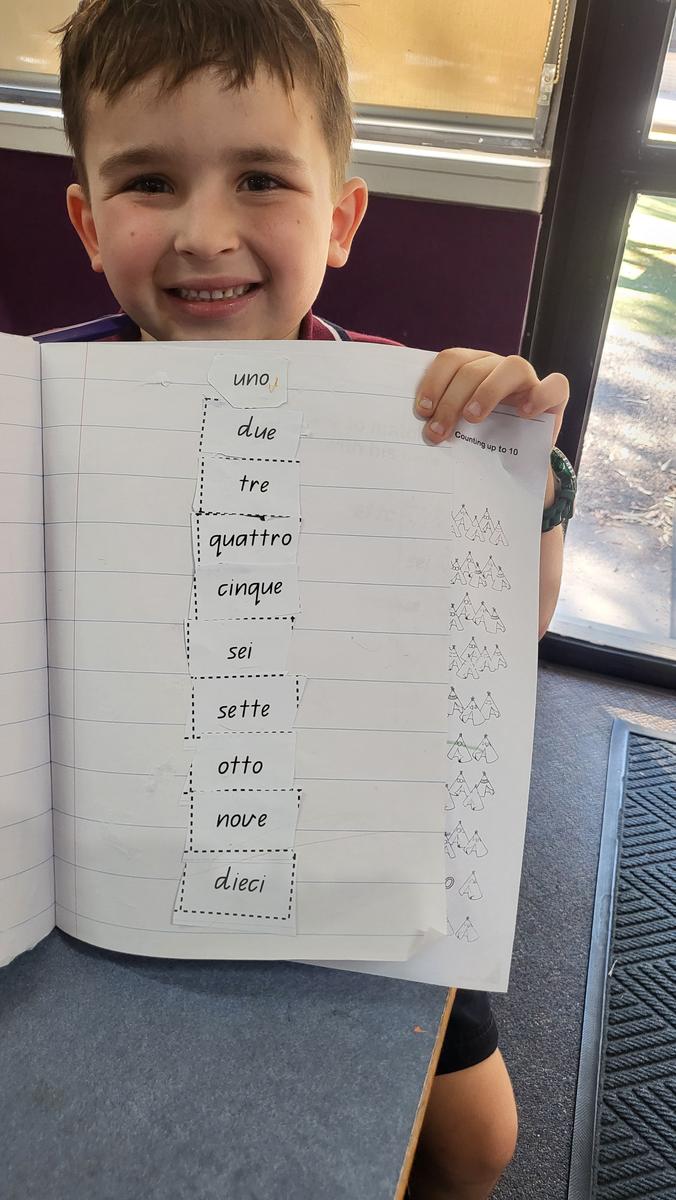 uno
due
tre
quattro
cinque
sei
sette
otto
nove
dieci
Counting up to 10